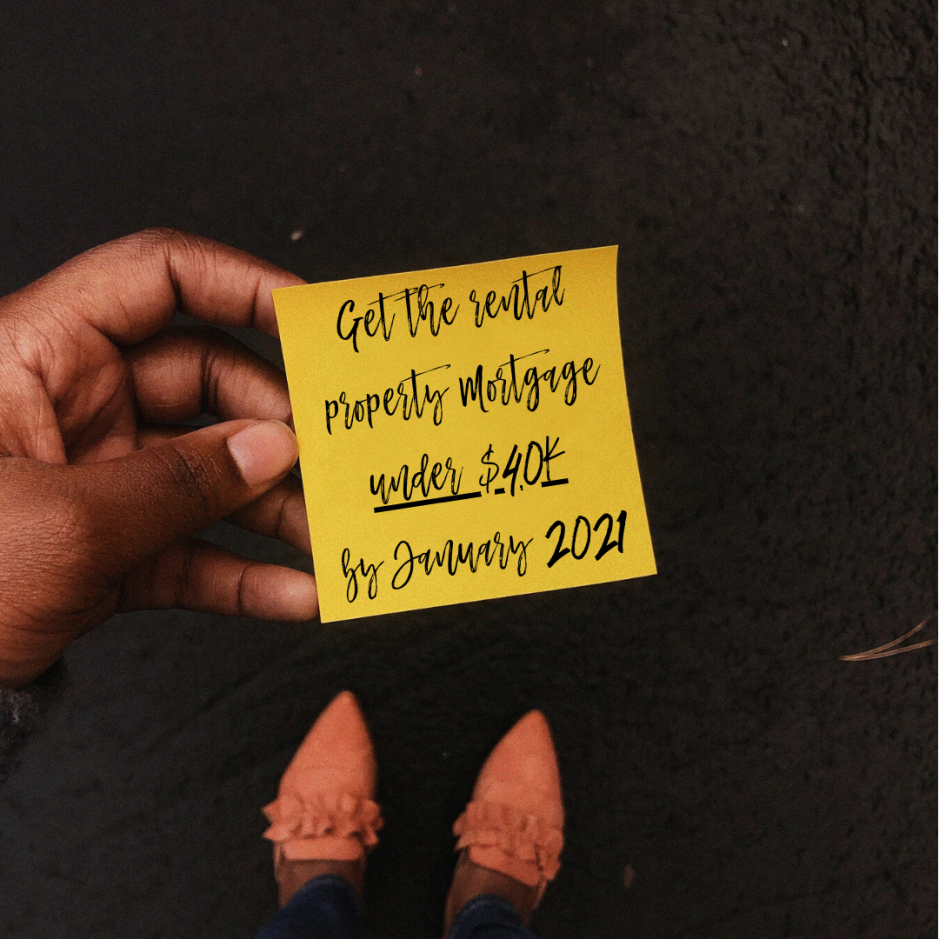 Get the rental
property Mortgage
under $40K
by January 2021